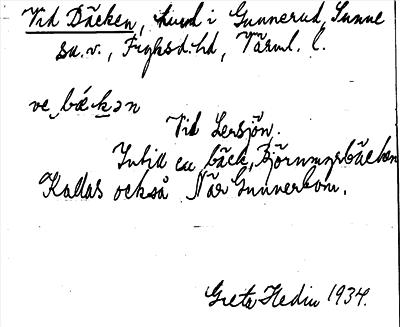 Vid Bäcken, hmd i Gunnerud, Sunne
sn. v., Fryksd. hd, Värml. l.
ve bäkən
Vid Lersjön.
Intill en bäck, Björnmyrbäcken
Kallas också När Gunnerbom.
Greta Hedin 1934.